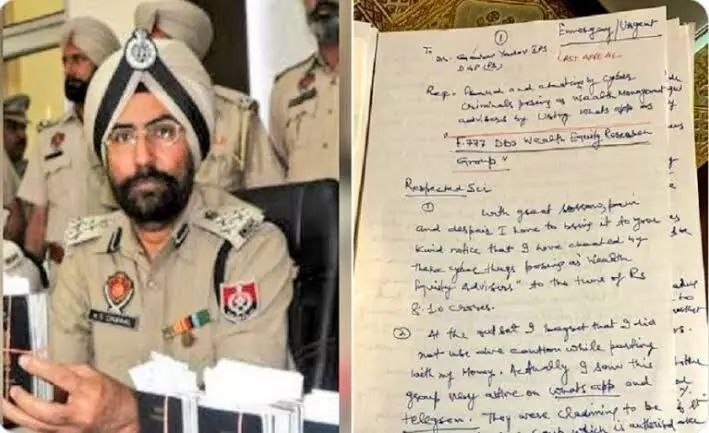 A S CHAHAL
① Emergency/Urgent
To Dr. Gaurav Yadav IPS
DGP (Pb) LAST APPEAL
Reg. Fraud and cheating by cyber
criminals posing as Wealth Management
advisors by using Whats app as
"F.777 DBS Wealth Equity Research
Group"
Respected Sir
① With great sorrow, pain
and despair I have to bring it to your
kind notice that I have cheated by
these cyber thugs posing as "Wealth
Equity advisors" to the tune of Rs
8.10 crores.
② At the outset I regret that I did
not use due caution while parting
with my money. Actually I saw this
group very active on whats app and
telegram. They were claiming to be
which is authorised